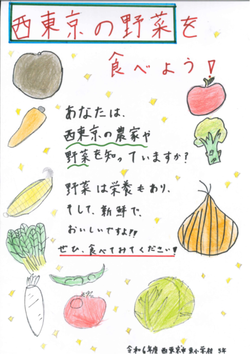 西東京の野菜を
食べよう!
あなたは、
西東京の農家や
野菜を知っていますか?
野菜は栄養もあり、
そして、新鮮で、
おいしいですよ!!
ぜひ、食べてみてください!
令和6年度 西東京市 東小学校 3年